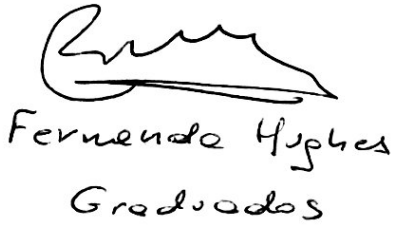 Fernanda Hughes
Graduados